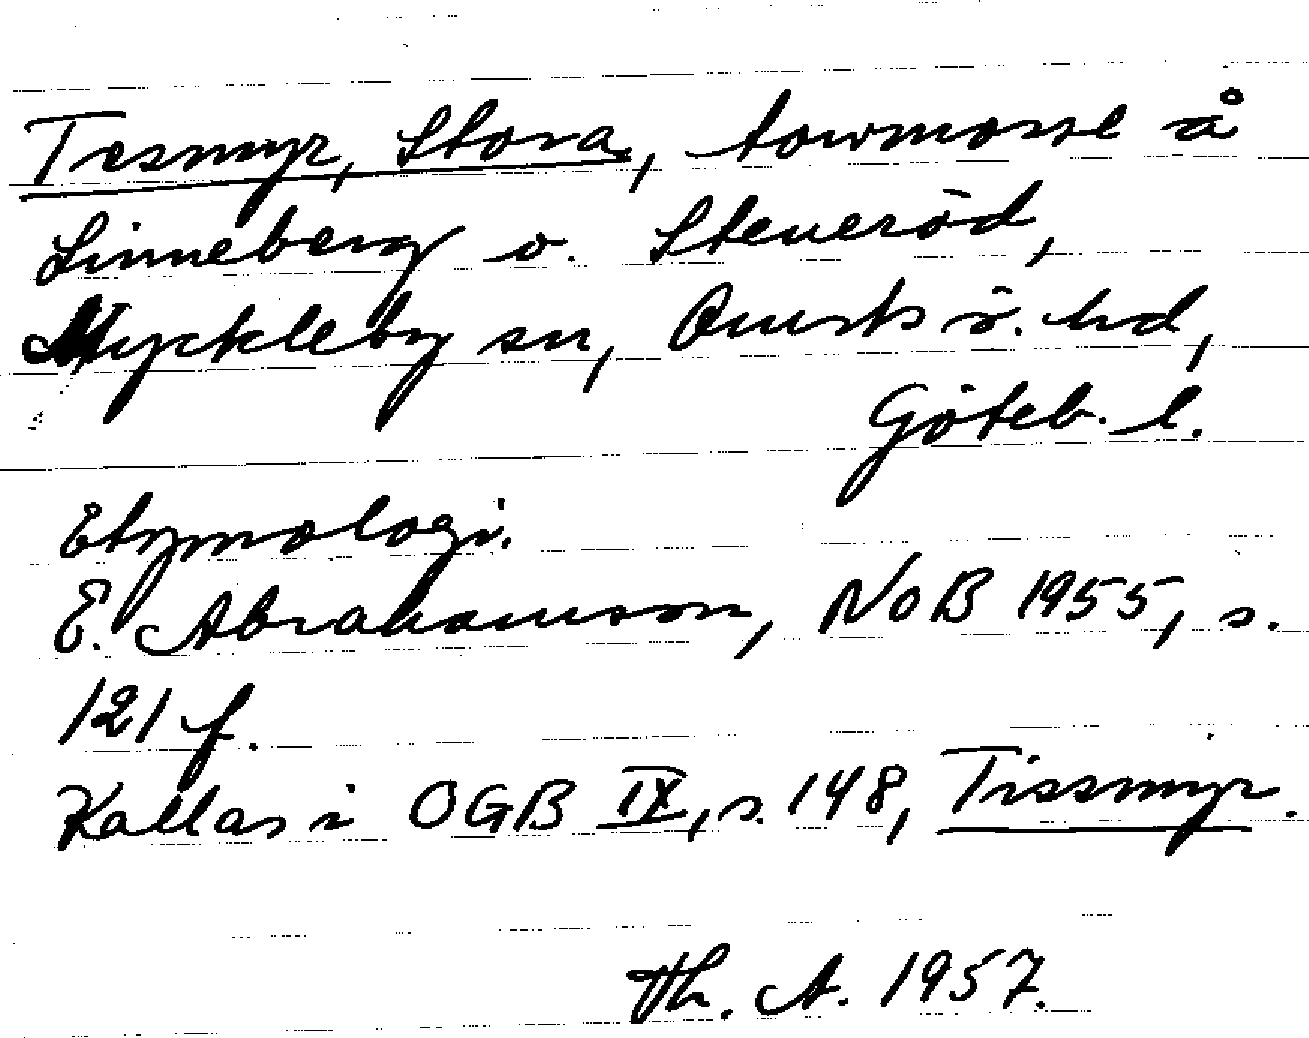 Tesmyr, Stora, torvmosse å
Linneberg o. Steneröd,
Myckleby sn, Orusts ö. hd,
Göteb. l.
Etymologi.
E. Abrahamson, NoB 1955, s.
121 f.
Kallas i OGB IX, s. 148, Tissmyr.
Th. A. 1957.